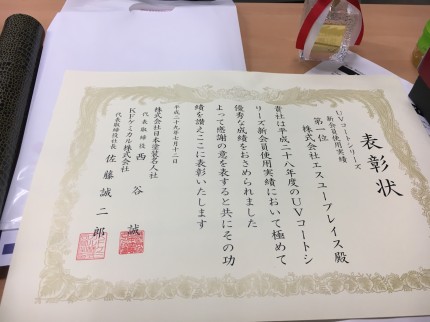 表彰状
UVコートシリーズ
新会員使用実績
第一位
株式会社エスユープレイス殿
貴社は平成二十八年度のUVコートシ
リーズ新会員使用実績において極めて
優秀な成績をおさめられました
よって感謝の意を表すると共にその功
績を讃えここに表彰いたします
平成二十九年七月十二日
株式会社日本塗装名人社
代表取締役 西谷 誠
KFケミカル株式会社
代表取締役社長 佐藤誠二郎